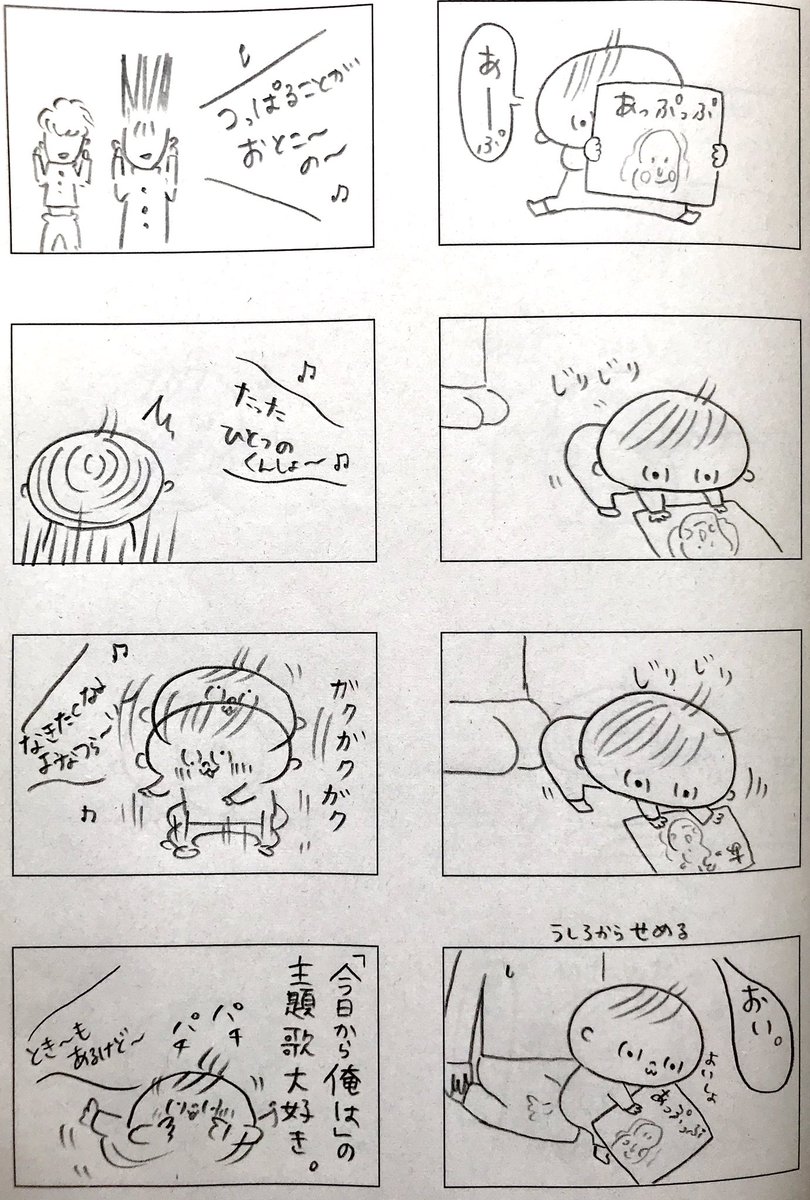 あーぷ
あっぷっぷ
じりじり
じりじり
うしろからせめる
おい。
よいしょ
あっぷっぷ
つっぱることが
おとこ〜
の〜
たった
ひとつの
くんしょ〜
ガクガクガク
なきたくなる
よなつら〜い
「今日から俺は」の
主題歌大好き。
パチ
パチ
とき〜も
あるけど〜